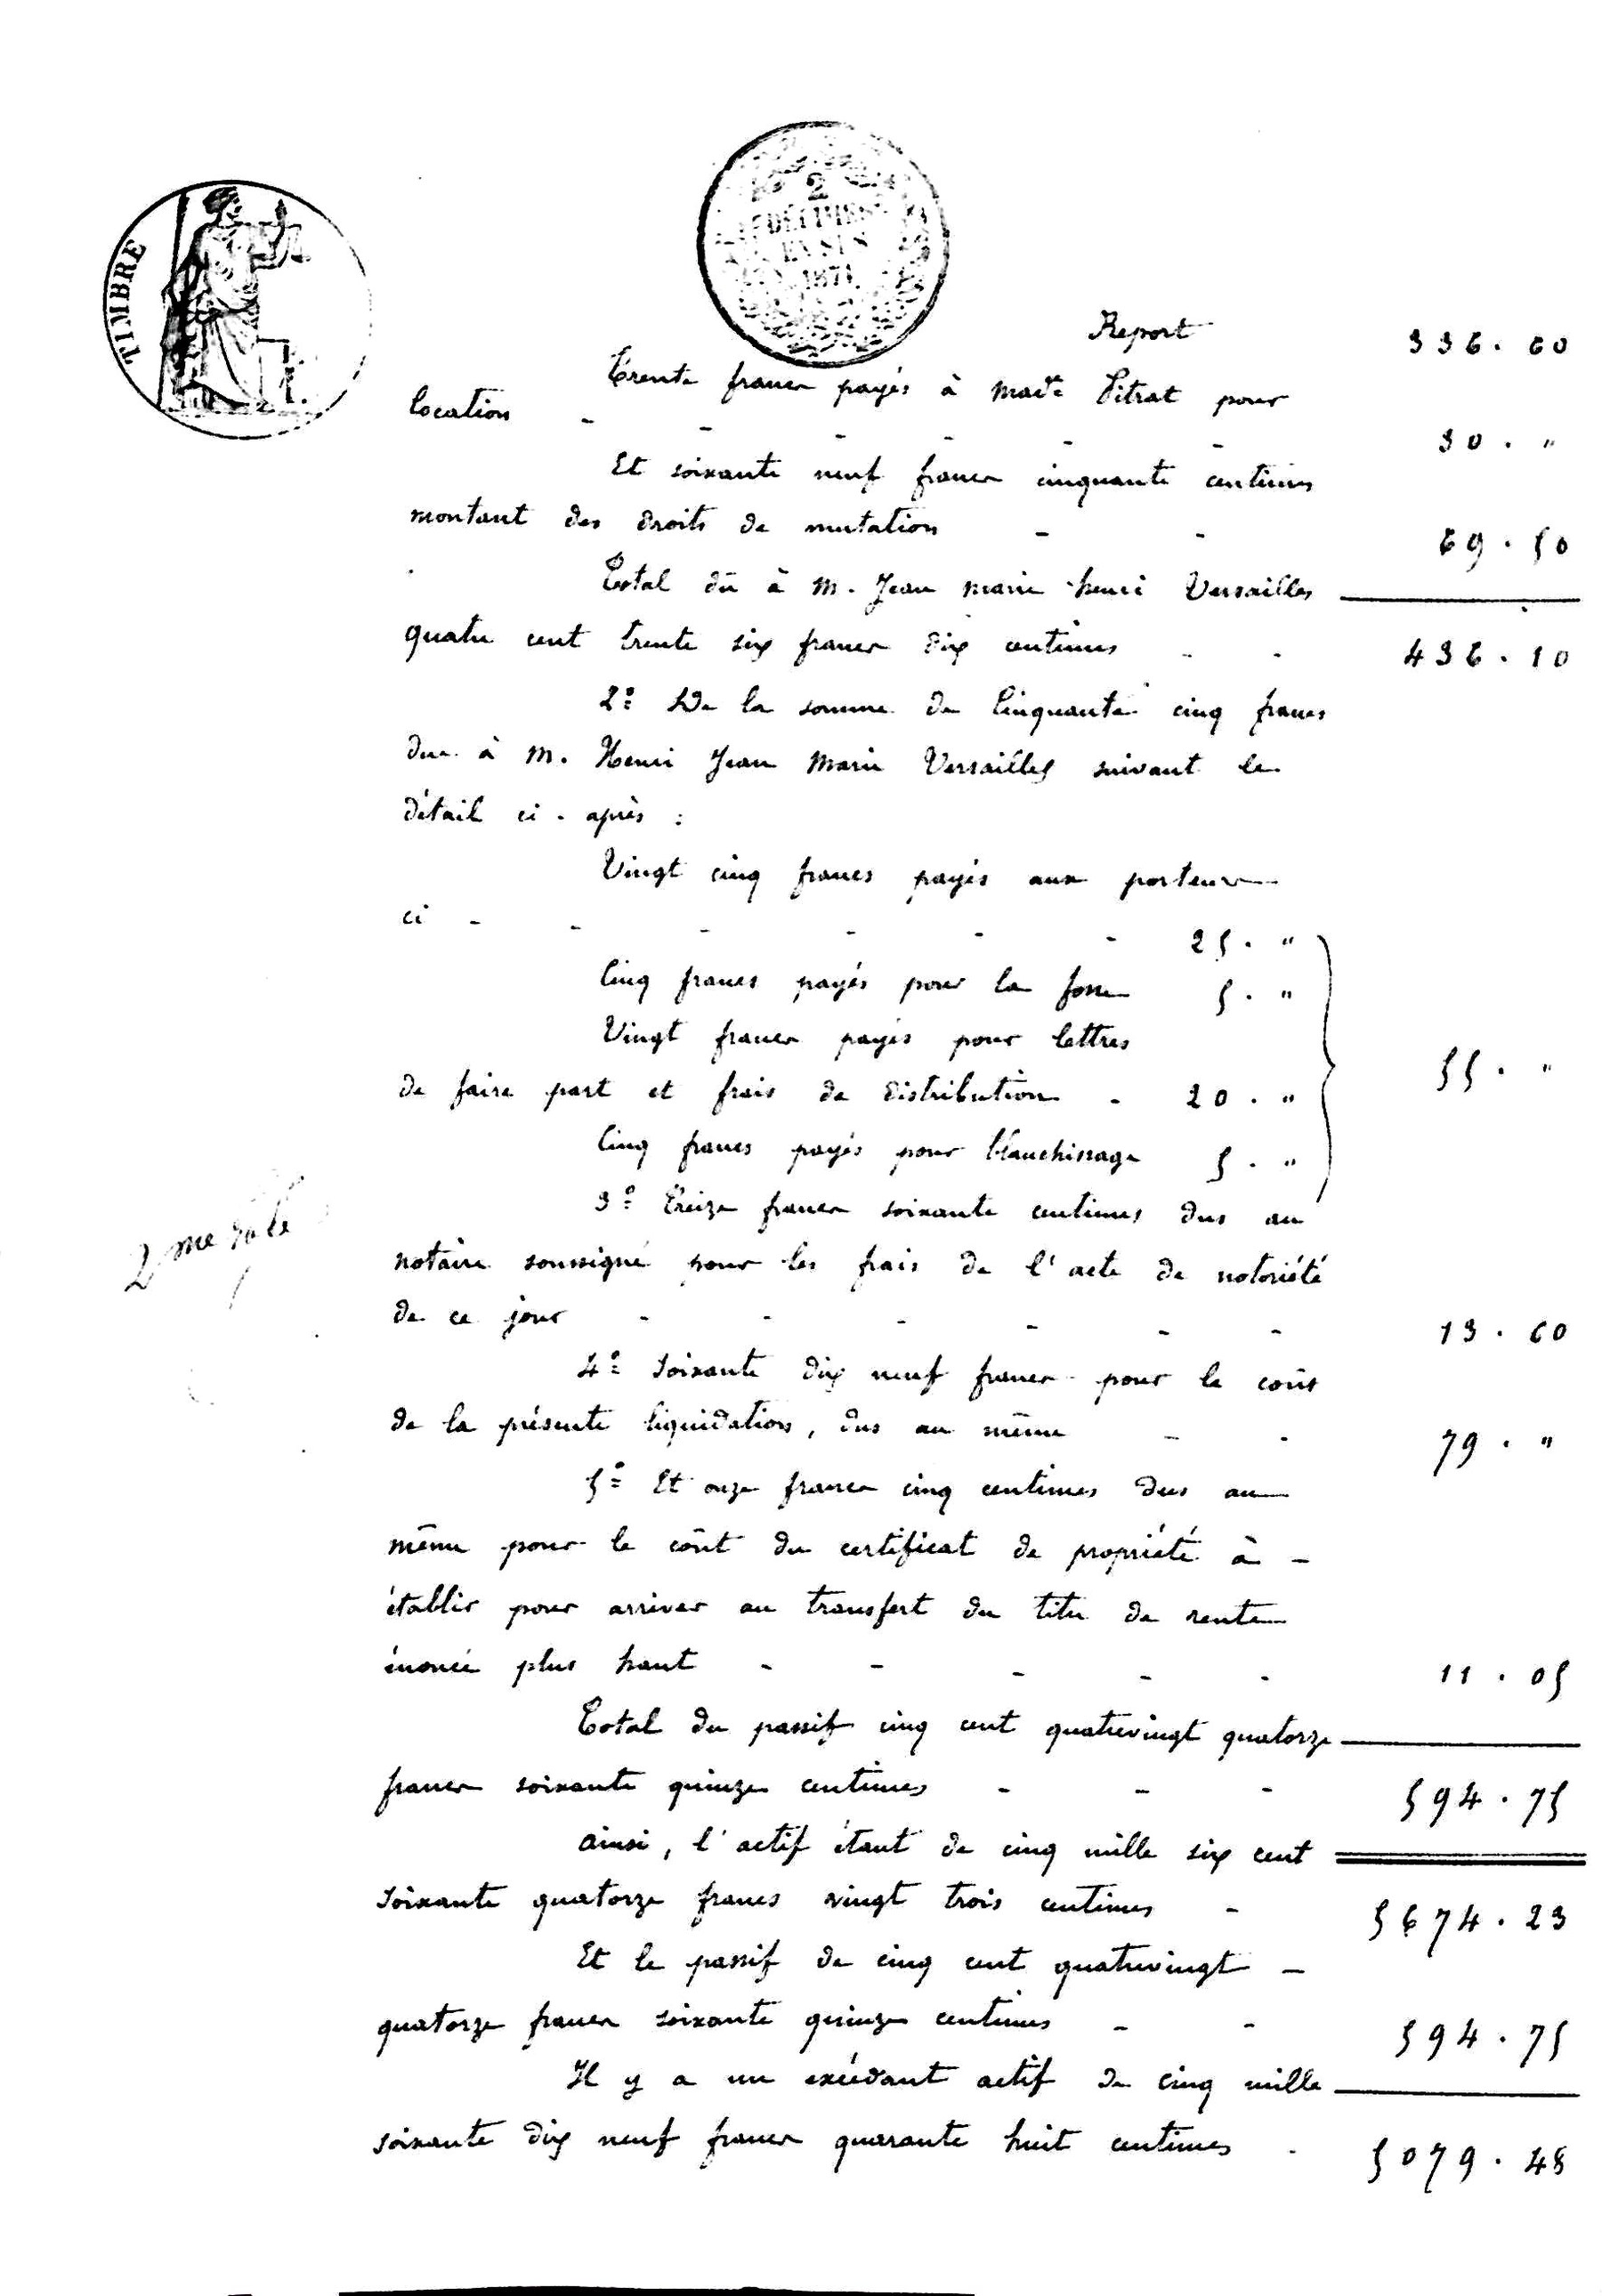 TIMBRE
2
DÉCIMES
EN SUS
1871.
Report 336.60
Trente francs payés à Made Pitrat pour
location - - - - - - 30. "
Et soixante neuf francs cinquante centimes
montant des droits de mutation - - 69.50
Total dû à M. Jean Marie Henri Versailles
quatre cent trente six francs dix centimes - - 436.10
2º De la somme de Cinquante cinq francs
due à M. Henri Jean Marie Versailles suivant le
détail ci-après :
Vingt cinq francs payés aux porteurs
ci - - - - - - 25. "
Cinq francs payés pour la fosse 5. "
Vingt francs payés pour lettres
de faire part et frais de distribution - 20. " 55. "
Cinq francs payés pour blanchissage 5. "
3º Treize francs soixante centimes dus au
2me rôle
notaire soussigné pour les frais de l'acte de notoriété
de ce jour - - - - - - 13.60
4º Soixante dix neuf francs pour le coût
de la présente liquidation, dus au même - - 79. "
5º Et onze francs cinq centimes dus au
même pour le coût du certificat de propriété à -
établir pour arriver au transfert du titre de rente
énoncé plus haut - - - - - 11.05
Total du passif cinq cent quatrevingt quatorze
francs soixante quinze centimes - - - 594.75
Ainsi, l'actif étant de cinq mille six cent
soixante quatorze francs vingt trois centimes - 5674.23
Et le passif de cinq cent quatrevingt -
quatorze francs soixante quinze centimes - - 594.75
Il y a un excédant actif de cinq mille
soixante dix neuf francs quarante huit centimes - 5079.48